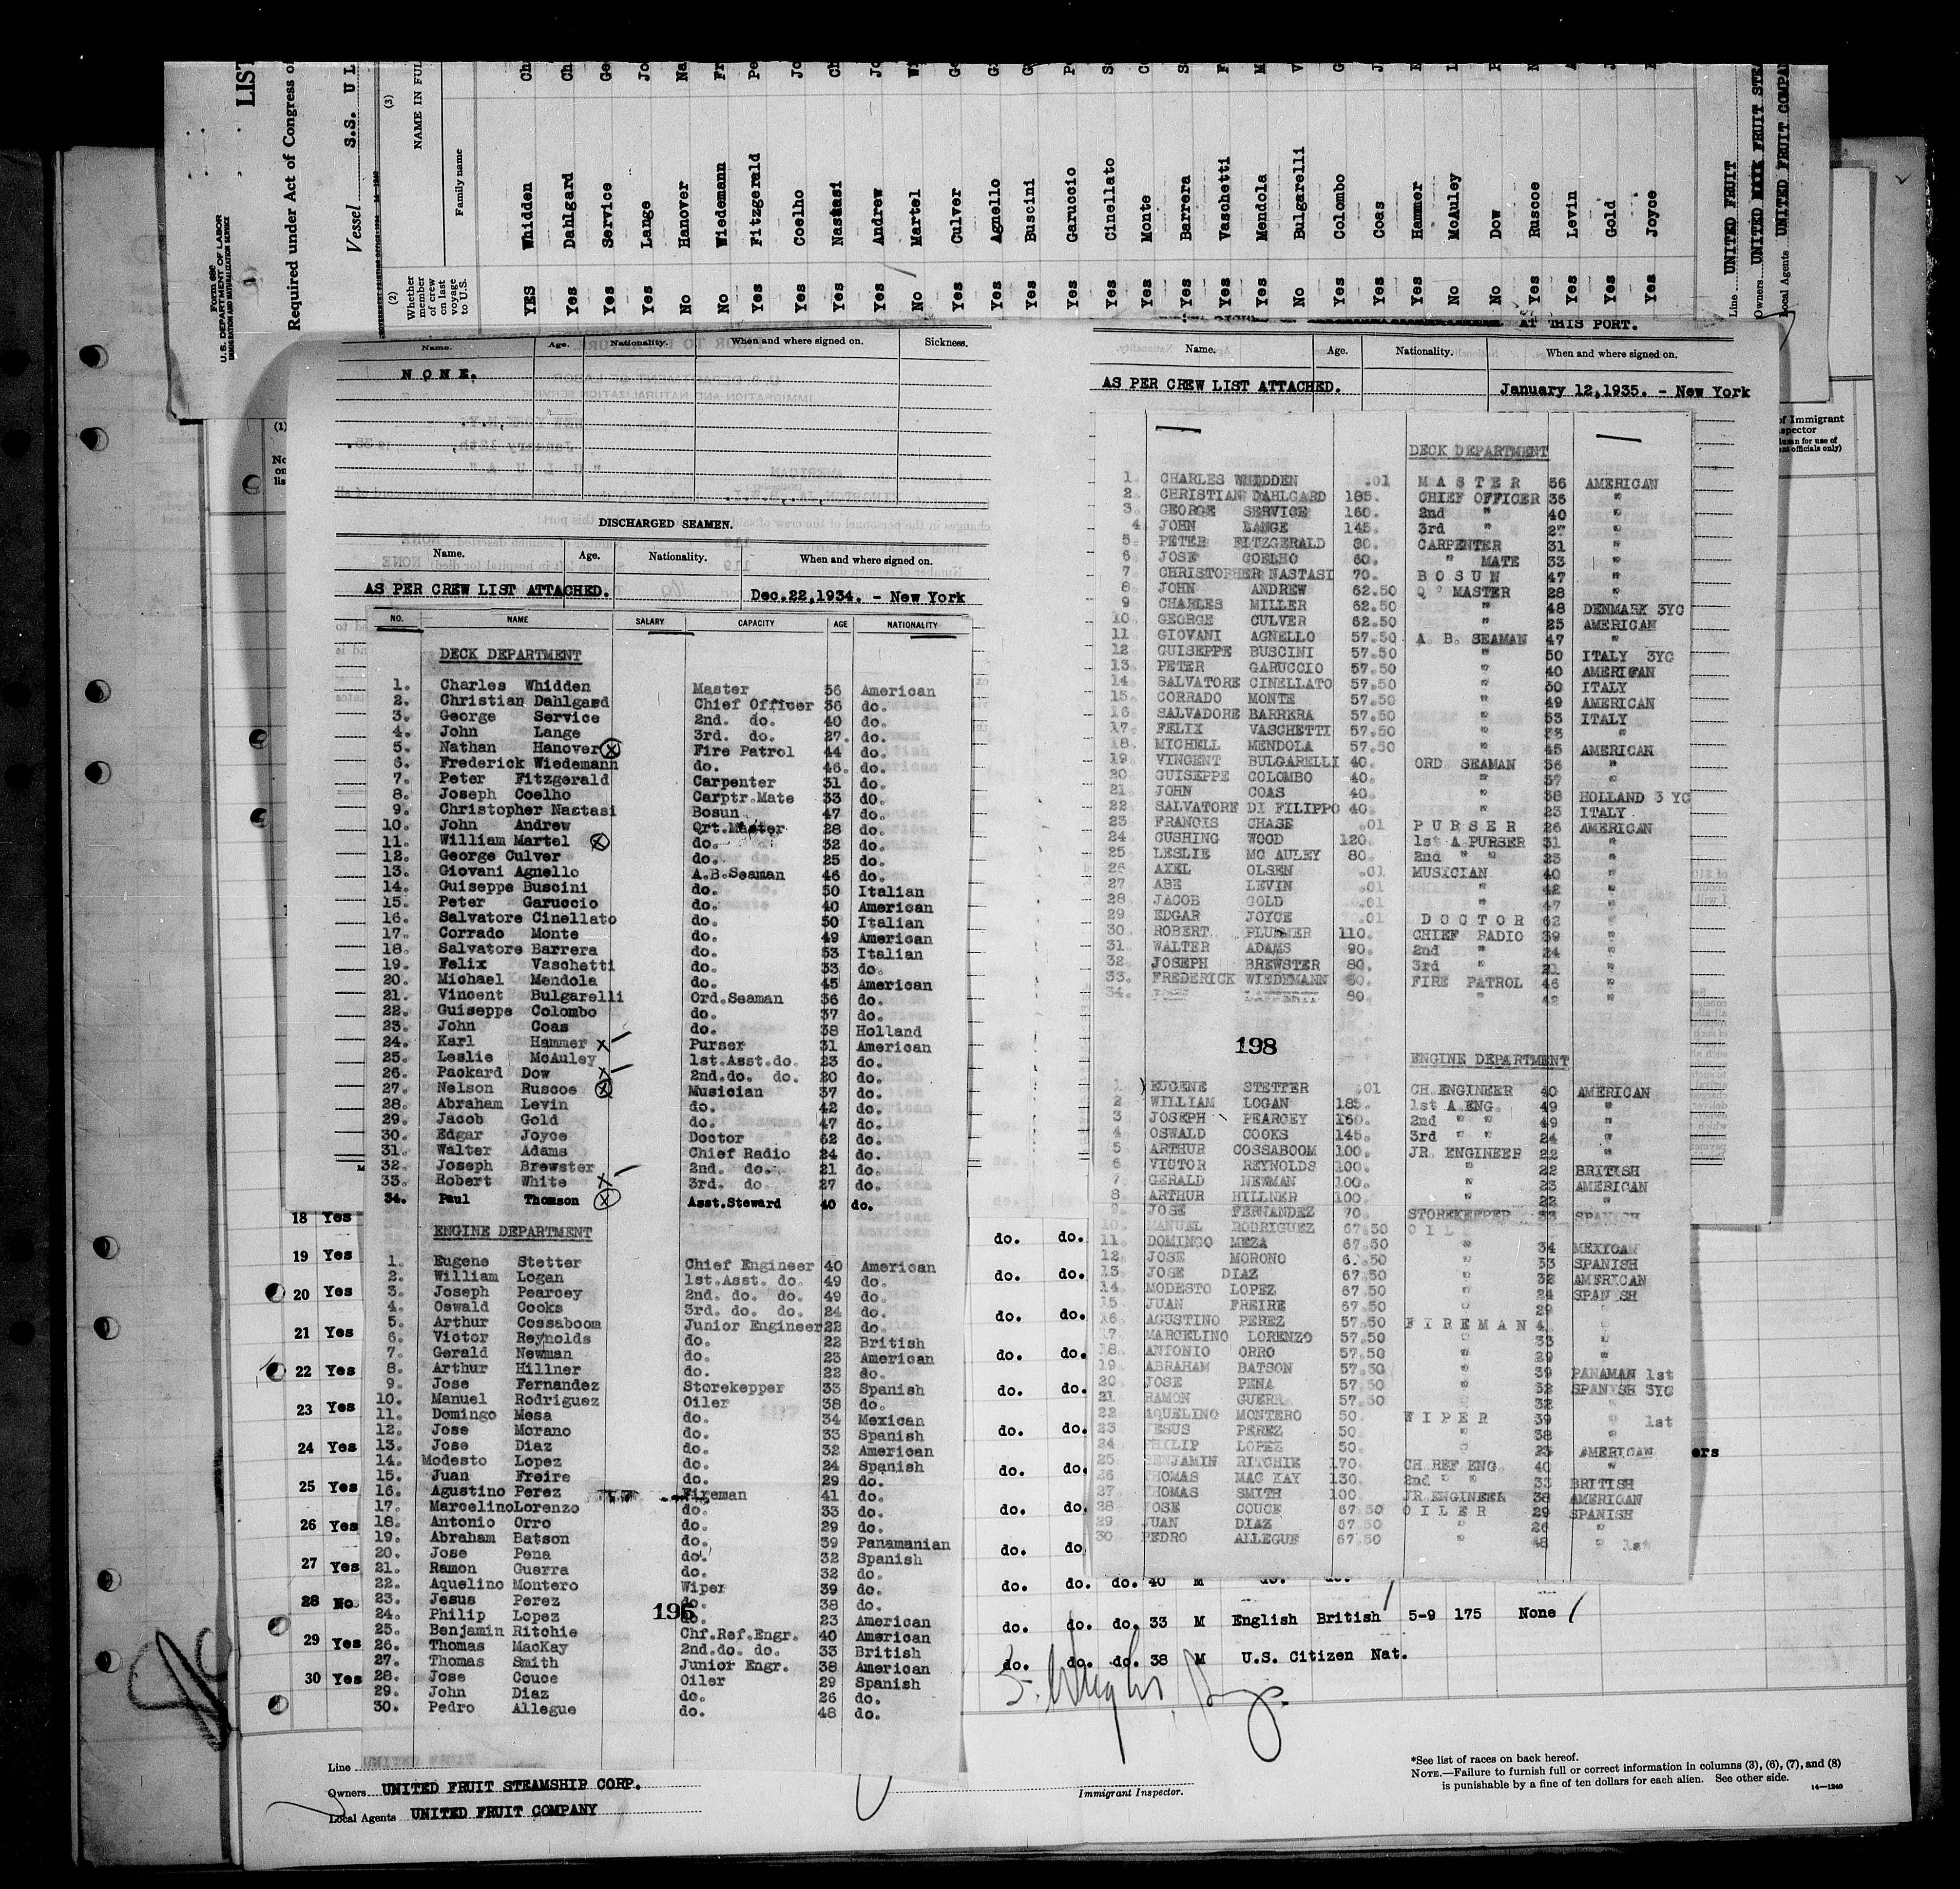 LIST
Required under Act of Congress of
Vessel S.S. UL
Form 680
U. S. DEPARTMENT OF LABOR
IMMIGRATION AND NATURALIZATION SERVICE
(3)
NAME IN FUL
Family name
(2)
Whether member of crew on last voyage to U.S.
YES Whidden Ch
Yes Dahlgard Ch
Yes Service Ge
Yes Lange Jo
No Hanover Na
No Wiedemann Fr
Yes Fitzgerald Pe
Yes Coelho Jo
Yes Nastasi Ch
Yes Andrew Jo
No Martel Wi
Yes Culver Ge
Yes Agnello G
Yes Buscini G
Yes Garuccio P
Yes Cinellato S
Yes Monte C
Yes Barrera S
Yes Vaschetti F
Yes Mendola M
No Bulgarelli V
Yes Colombo G
Yes Coas J
Yes Hammer
No McAuley L
No Dow
Yes Ruscoe
Yes Levin
Yes Gold
Yes Joyce
Line UNITED FRUIT
Owners UNITED FRUIT STEA
Local Agents UNITED FRUIT COMPAN
Name. Age. Nationality. When and where signed on. Sickness.
NONE.
DISCHARGED SEAMEN.
Name. Age. Nationality. When and where signed on.
AS PER CREW LIST ATTACHED. Dec.22,1934. - New York
NO. NAME SALARY CAPACITY AGE NATIONALITY
DECK DEPARTMENT
1. Charles Whidden Master 56 American
2. Christian Dahlgard Chief Officer 36 do.
3. George Service 2nd. do. 40 do.
4. John Lange 3rd. do. 27. do.
5. Nathan Hanover Fire Patrol 44 do.
6. Frederick Wiedemann do. 46. do.
7. Peter Fitzgerald Carpenter 31 do.
8. Joseph Coelho Carptr.Mate 33 do.
9. Christopher Nastasi Bosun 47 do.
10. John Andrew Qrt.Master 28 do.
11. William Martel do. 32 do.
12. George Culver do. 25 do.
13. Giovani Agnello A.B.Seaman 46 do.
14. Guiseppe Buscini do. 50 Italian
15. Peter Garuccio do. 40 American
16. Salvatore Cinellato do. 50 Italian
17. Corrado Monte do. 49 American
18. Salvatore Barrera do. 53 Italian
19. Felix Vaschetti do. 33 do.
20. Michael Mendola do. 45 American
21. Vincent Bulgarelli Ord.Seaman 36 do.
22. Guiseppe Colombo do. 37 do.
23. John Coas do. 38 Holland
24. Karl Hammer x Purser 31 American
25. Leslie McAuley 1st.Asst.do. 23 do.
26. Packard Dow x 2nd.do. do. 20 do.
27. Nelson Ruscoe Musician 37 do.
28. Abraham Levin do. 42 do.
29. Jacob Gold do. 47 do.
30. Edgar Joyce Doctor 62 do.
31. Walter Adams Chief Radio 24 do.
32. Joseph Brewster 2nd. do. 21 do.
33. Robert White x 3rd. do. 27 do.
34. Paul Thomson Asst.Steward 40 do.
ENGINE DEPARTMENT
1. Eugene Stetter Chief Engineer 40 American
2. William Logan 1st.Asst. do. 49 do.
3. Joseph Pearcey 2nd. do. do. 49 do.
4. Oswald Cooks 3rd. do. do. 24 do.
5. Arthur Cossaboom Junior Engineer 22 do.
6. Victor Reynolds do. 22 British
7. Gerald Newman do. 23 American
8. Arthur Hillner do. 22 do.
9. Jose Fernandez Storekepper 33 Spanish
10. Manuel Rodriguez Oiler 38 do.
11. Domingo Mesa do. 34 Mexican
12. Jose Morano do. 33 Spanish
13. Jose Diaz do. 32 American
14. Modesto Lopez do. 24 Spanish
15. Juan Freire do. 29 do.
16. Agustino Perez Fireman 41 do.
17. MarcelinoLorenzo do. 33 do.
18. Antonio Orro do. 29 do.
19. Abraham Batson do. 39 Panamanian
20. Jose Pena do. 32 Spanish
21. Ramon Guerra do. 32 do.
22. Aquelino Montero Wiper 39 do.
23. Jesus Perez do. 38 do.
24. Philip Lopez do. 23 American
196
25. Benjamin Ritchie Chf.Ref.Engr. 40 American
26. Thomas MacKay 2nd.do. do. 33 British
27. Thomas Smith Junior Engr. 38 American
28. Jose Couce Oiler 29 Spanish
29. John Diaz do. 26 do.
30. Pedro Allegue do. 48 do.
AT THIS PORT.
Name. Age. Nationality. When and where signed on.
AS PER CREW LIST ATTACHED. January 12,1935. - New York
DECK DEPARTMENT
1. CHARLES WHIDDEN .01 MASTER 56 AMERICAN
2. CHRISTIAN DAHLGARD 185. CHIEF OFFICER 36 "
3. GEORGE SERVICE 160. 2nd " 40 "
4 JOHN LANGE 145. 3rd " 27 "
5 PETER FITZGERALD 80. CARPENTER 31 "
6 JOSE COELHO 60. " MATE 33 "
7 CHRISTOPHER NASTASI 70. BOSUN 47 "
8. JOHN ANDREW 62.50 Q " MASTER 28 "
9 CHARLES MILLER 62.50 " 48 DENMARK 3YC
10. GEORGE CULVER 62.50 " 25 AMERICAN
11 GIOVANI AGNELLO 57.50 A. B. SEAMAN 47 "
12 GUISEPPE BUSCINI 57.50 " 50 ITALY 3YC
13. PETER GARUCCIO 57.50 " 40 AMERICAN
14. SALVATORE CINELLATO 57.50 " 50 ITALY
15. CORRADO MONTE 57.50 " 49 AMERICAN
16. SALVADORE BARRERA 57.50 " 53 ITALY
17. FELIX VASCHETTI 57.50 " 33 "
18. MICHELL MENDOLA 57.50 " 45 AMERICAN
19. VINCENT BULGARELLI 40. ORD SEAMAN 36 "
20 GUISEPPE COLOMBO 40. " 37 "
21. JOHN COAS 40. " 38 HOLLAND 3 YC
22 SALVATORE DI FILIPPO 40. " 23 ITALY
23 FRANCIS CHASE .01 PURSER 26 AMERICAN
24 CUSHING WOOD 120. 1st A PURSER 31 "
25 LESLIE MC AULEY 80. 2nd " " 23 "
26 AXEL OLSEN .01 MUSICIAN 40 "
27 ABE LEVIN .01 " 42 "
28 JACOB GOLD .01 " 47 "
29 EDGAR JOYCE .01 DOCTOR 62 "
30. ROBERT PLUMMER 110. CHIEF RADIO 39 "
31. WALTER ADAMS 90. 2nd " 24 "
32. JOSEPH BREWSTER 80. 3rd " 21 "
33. FREDERICK WIEDEMANN 80. FIRE PATROL 46 "
34. 80. " 42 "
198
ENGINE DEPARTMENT
1 EUGENE STETTER .01 CH.ENGINEER 40 AMERICAN
2 WILLIAM LOGAN 185. 1st A ENG. 49 "
3 JOSEPH PEARCEY 160. 2nd " " 49 "
4 OSWALD COOKS 145. 3rd " " 24 "
5 ARTHUR COSSABOOM 100. JR. ENGINEER 22 "
6 VICTOR REYNOLDS 100. " 22 BRITISH
7 GERALD NEWMAN 100. " 23 AMERICAN
8 ARTHUR HILLNER 100. " 22 "
9. JOSE FERNANDEZ 70. STOREKEEPER 33 SPANISH
10. MANUEL RODRIGUEZ 67.50
11. DOMINGO MEZA 67.50 " 34 MEXICAN
12 JOSE MORONO 50 " 33 SPANISH
13 JOSE DIAZ 67.50 " 32 AMERICAN
14 MODESTO LOPEZ 67.50 " 24 SPANISH
15. JUAN FREIRE 67.50 " 29 "
16. AGUSTINO PEREZ 57.50 FIREMAN "
17. MARCELINO LORENZO 57.50 " 33 "
18. ANTONIO ORRO 57.50 " 29 "
19. ABRAHAM BATSON 57.50 " 39 PANAMAN 1st
20 JOSE PENA 57.50 " 32 SPANISH 3YC
21 RAMON GUERRA 57.50 " 32 "
22 AQUELINO MONTERO 50. WIPER 39 " 1st
23 JESUS PEREZ 50. " 38 "
24 PHILIP LOPEZ 50. " 23 AMERICAN
25 BENJAMIN RITCHIE 170. CH.REF.ENG. 40 "
26 THOMAS MAC KAY 130. 2nd " " 33 BRITISH
27 THOMAS SMITH 100. JR ENGINEER 38 AMERICAN
28 JOSE COUCE 67.50 OILER 29 SPANISH
29 JUAN DIAZ 67.50 " 26 "
30 PEDRO ALLEGUE 67.50 " 48 " 1st
18 Yes do. do.
19 Yes do. do.
20 Yes do. do.
21 Yes do. do.
22 Yes do. do.
23 Yes do. do.
24 Yes do. do.
25 Yes do. do.
26 Yes do. do.
27 Yes do. do. do. 40 M
28 No do. do. do. 33 M English British 5-9 175 None
29 Yes do. do. do. 38 M U.S. Citizen Nat.
30 Yes
Line UNITED FRUIT
Owners UNITED FRUIT STEAMSHIP CORP.
Local Agents UNITED FRUIT COMPANY
Immigrant Inspector.
*See list of races on back hereof.
NOTE.—Failure to furnish full or correct information in columns (3), (6), (7), and (8)
is punishable by a fine of ten dollars for each alien. See other side.
14—1240